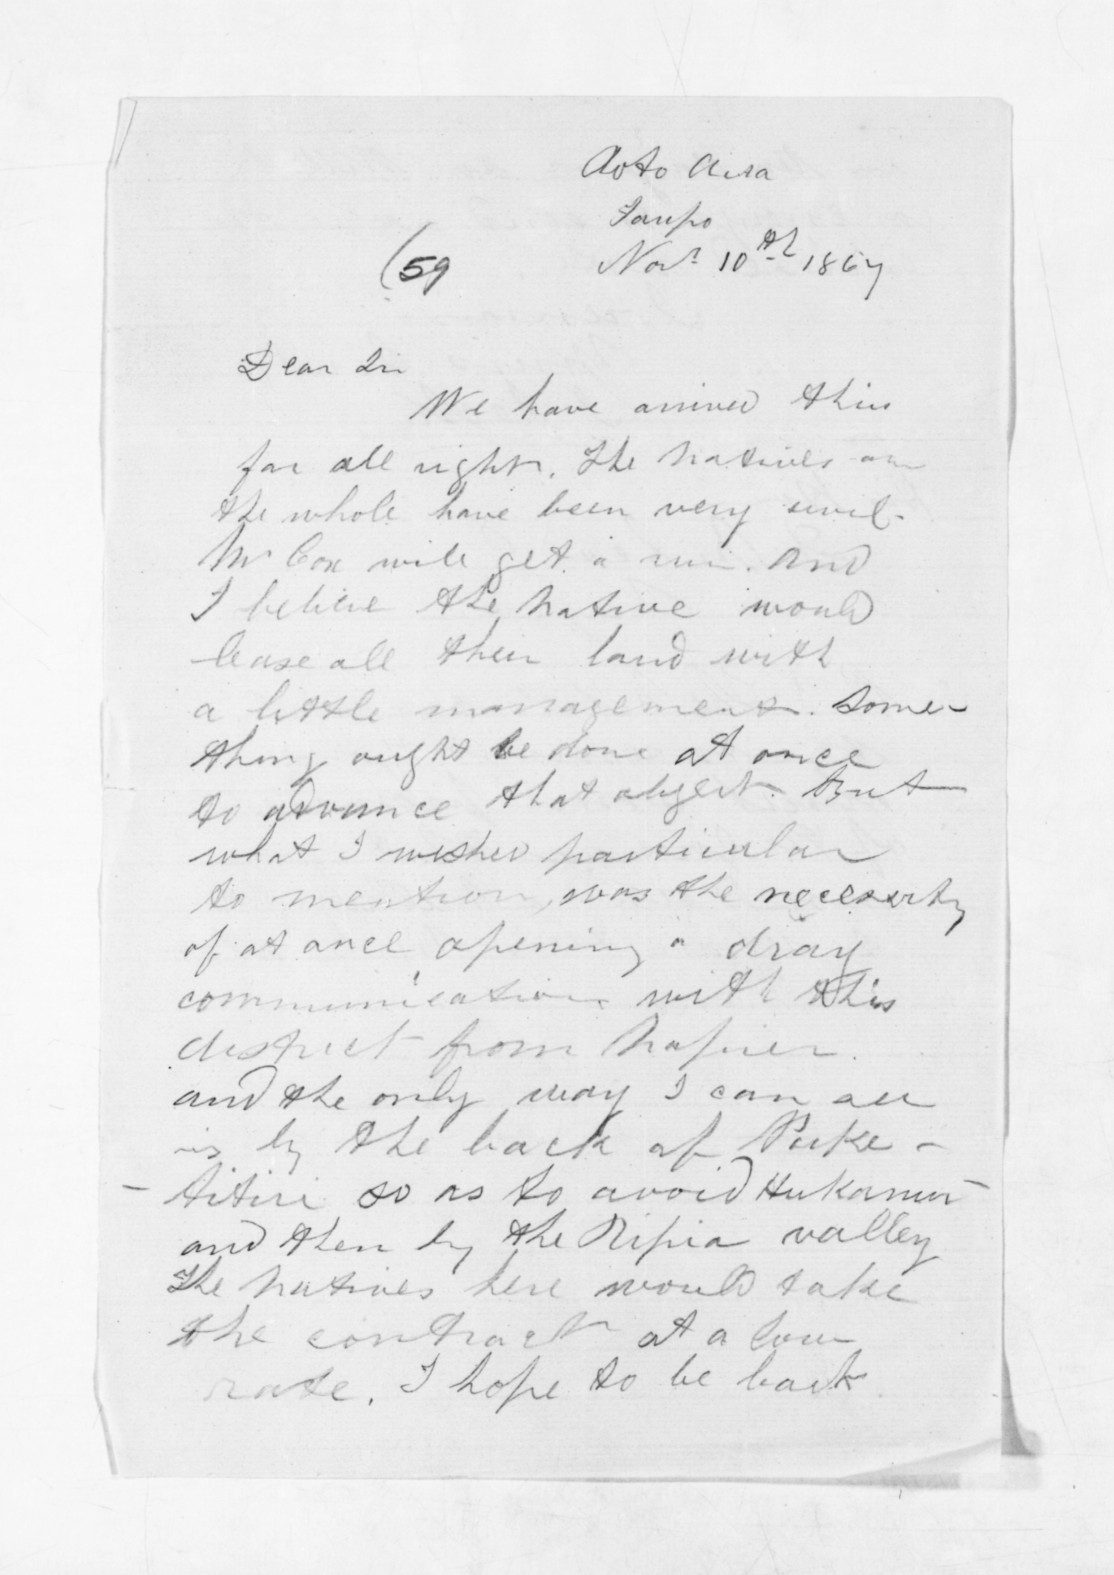 Roto Aira
Taupo
Novr. 10th 1867
(59
Dear Sir
We have arrived thus
far all right. The Natives on
the whole have been very civil.
Mr Cox will get a run. And
I believe the Native would
lease all their land with
a little management. Some-
thing ought be done at once
to advance that object. But
what I wished particular
to mention, was the necessity
of at once opening a dray
communication with this
district from Napier.
and the only way I can see
is by the back of Puke-
-titiri so as to avoid
and then by the Ripia valley
The Natives here would take
the contract at a low
rate. I hope to be back